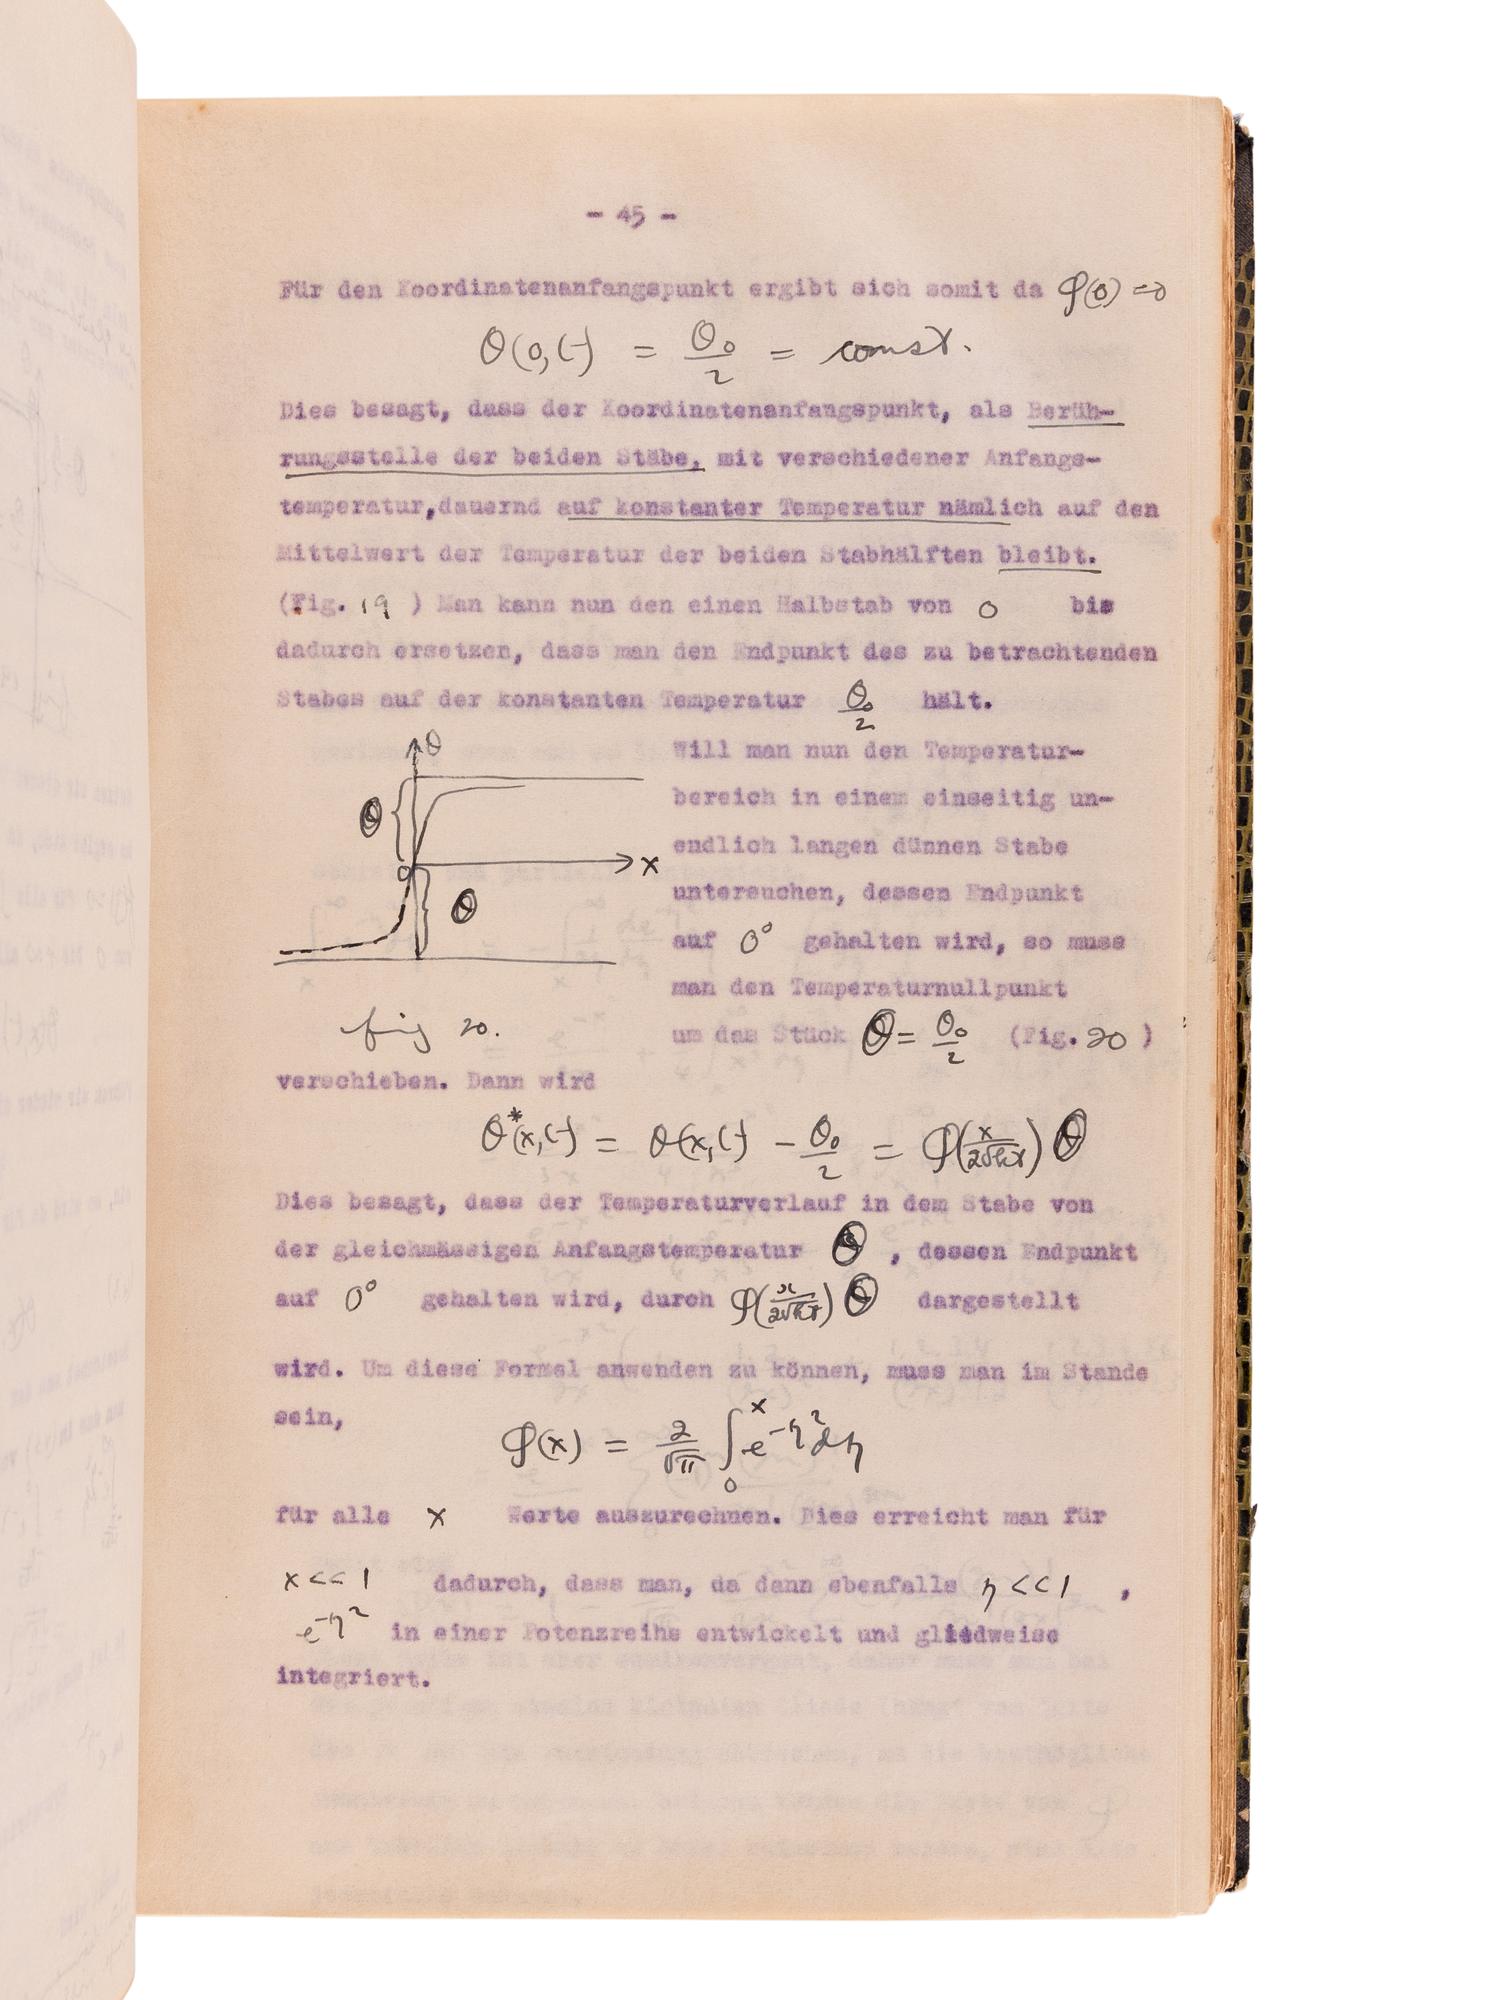 - 45 -
Für den Koordinatenanfangspunkt ergibt sich somit da φ(0) = 0
θ(0,t) = θ₀/2 = const.
Dies besagt, dass der Koordinatenanfangspunkt, als Berüh-
rungsstelle der beiden Stäbe, mit verschiedener Anfangs-
temperatur,dauernd auf konstanter Temperatur nämlich auf den
Mittelwert der Temperatur der beiden Stabhälften bleibt.
(Fig. 19 ) Man kann nun den einen Halbstab von 0 bis
dadurch ersetzen, dass man den Endpunkt des zu betrachtenden
Stabes auf der konstanten Temperatur θ₀/2 hält.
θ
Θ
x
0
Θ
fig 20.
Will man nun den Temperatur-
bereich in einem einseitig un-
endlich langen dünnen Stabe
untersuchen, dessen Endpunkt
auf 0° gehalten wird, so muss
man den Temperaturnullpunkt
um das Stück Θ = θ₀/2 (Fig. 20 )
verschieben. Dann wird
θ*(x,t) = θ(x,t) - θ₀/2 = φ(x/2√kt) Θ
Dies besagt, dass der Temperaturverlauf in dem Stabe von
der gleichmässigen Anfangstemperatur Θ , dessen Endpunkt
auf 0° gehalten wird, durch φ(x/2√kt) Θ dargestellt
wird. Um diese Formel anwenden zu können, muss man im Stande
sein,
φ(x) = 2/√π ∫₀ˣ e^-η² dη
für alle x Werte auszurechnen. Dies erreicht man für
x << 1 dadurch, dass man, da dann ebenfalls η << 1 ,
e^-η² in einer Potenzreihe entwickelt und gliedweise
integriert.